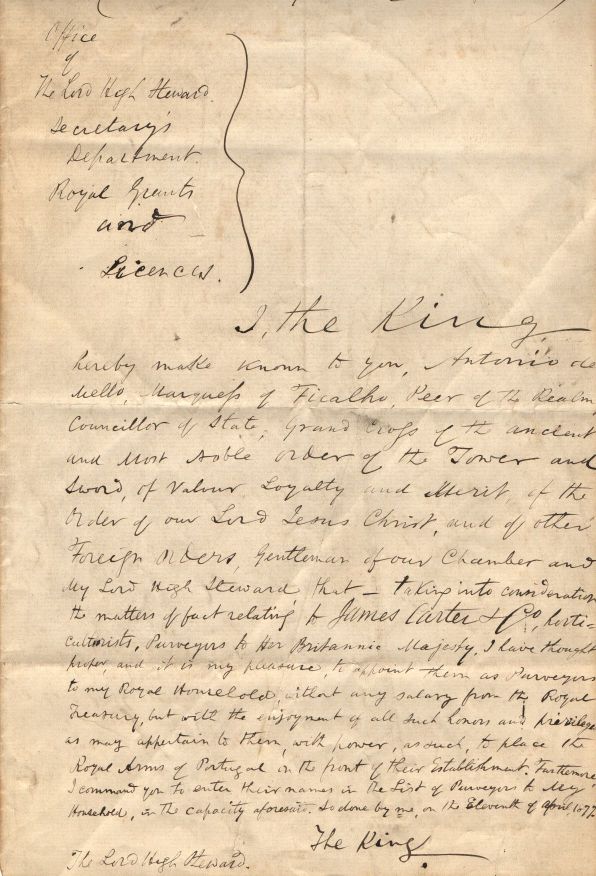 Office
of
The Lord High Steward.
Secretary's
Department.
Royal Grants
and
Licences.
I, the King
hereby make known to you, Antonio de
Mello, Marquess of Ficalho, Peer of the Realm,
Councillor of State, Grand Cross of the ancient
and Most Noble Order of the Tower and
Sword, of Valour Loyalty and Merit, of the
Order of our Lord Jesus Christ, and of other
Foreign Orders, Gentleman of our Chamber and
My Lord High Steward, that — taking into consideration
the matters of fact relating to James Carter & Co, horti=
culturists, Purveyors to Her Britannic Majesty, I have thought
proper, and it is my pleasure, to appoint them as Purveyors
to my Royal Household, without any salary from the Royal
Treasury, but with the enjoyment of all such honors and privileges
as may appertain to them, with power, as such, to place the
Royal Arms of Portugal on the front of their Establishment. Furthermore,
I command you to enter their names in the List of Purveyors to My
Household, in the capacity aforesaid. So done by me, on the Eleventh of April 1877.
The King.
The Lord High Steward.